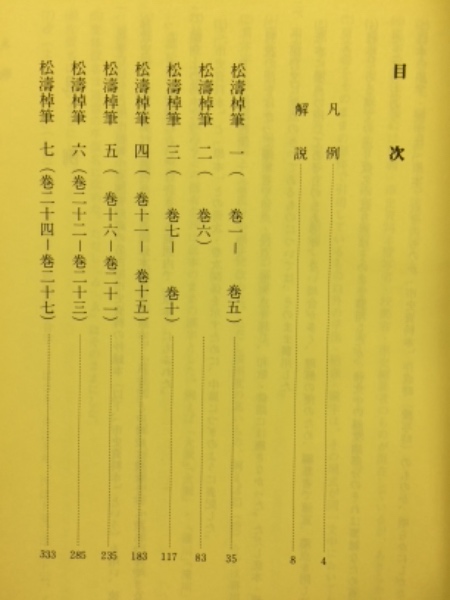 目次
凡例 4
解説 8
松濤棹筆 一(巻一－巻五) 35
松濤棹筆 二(巻六) 83
松濤棹筆 三(巻七－巻十) 117
松濤棹筆 四(巻十一－巻十五) 183
松濤棹筆 五(巻十六－巻二十一) 235
松濤棹筆 六(巻二十二－巻二十三) 285
松濤棹筆 七(巻二十四－巻二十七) 333